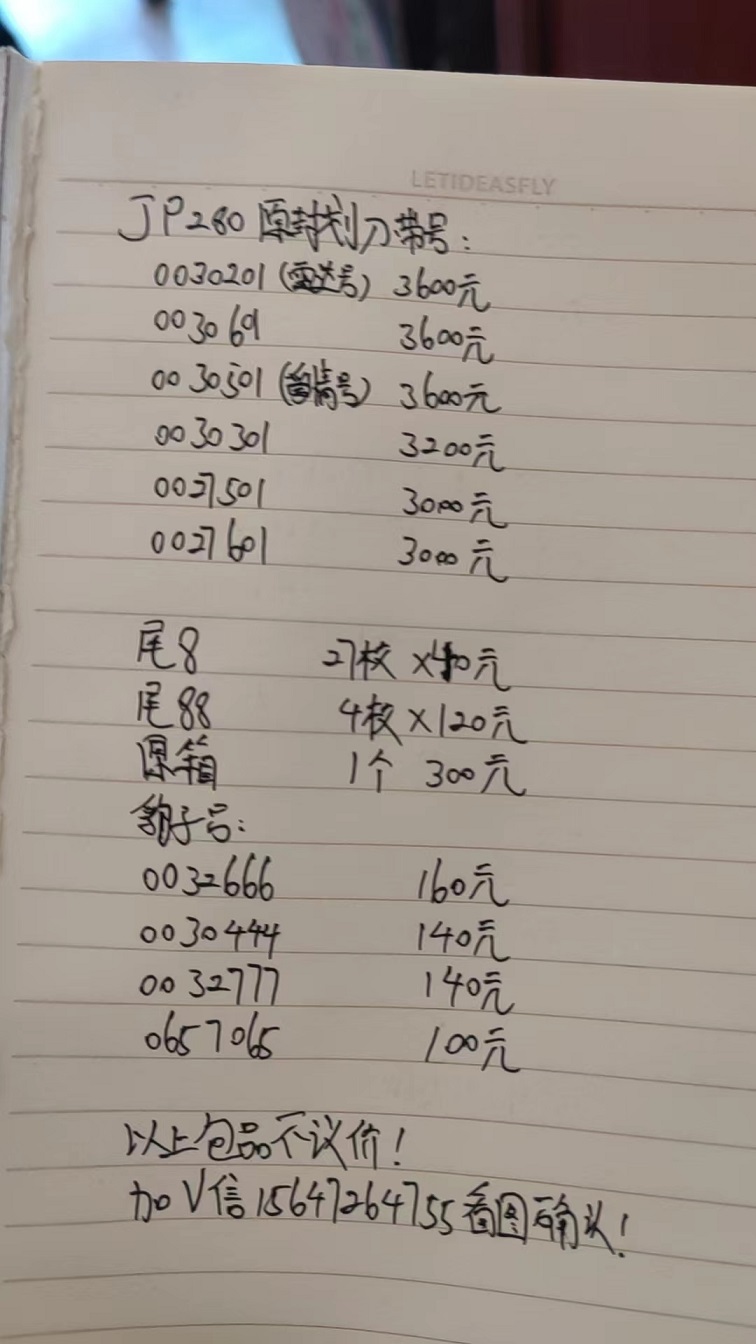 LETIDEASFLY
JP280原封划刀带号:
0030201(雷达号) 3600元
0030 3600元
0030501(首情号) 3600元
0030301 3200元
0027501 3000元
0027601 3000元
尾8 27枚 x40元
尾88 4枚 x120元
原箱 1个 300元
豹子号:
0032666 160元
0030444 140元
0032777 140元
0657065 100元
以上包品不议价!
加V信15647264755看图确认!